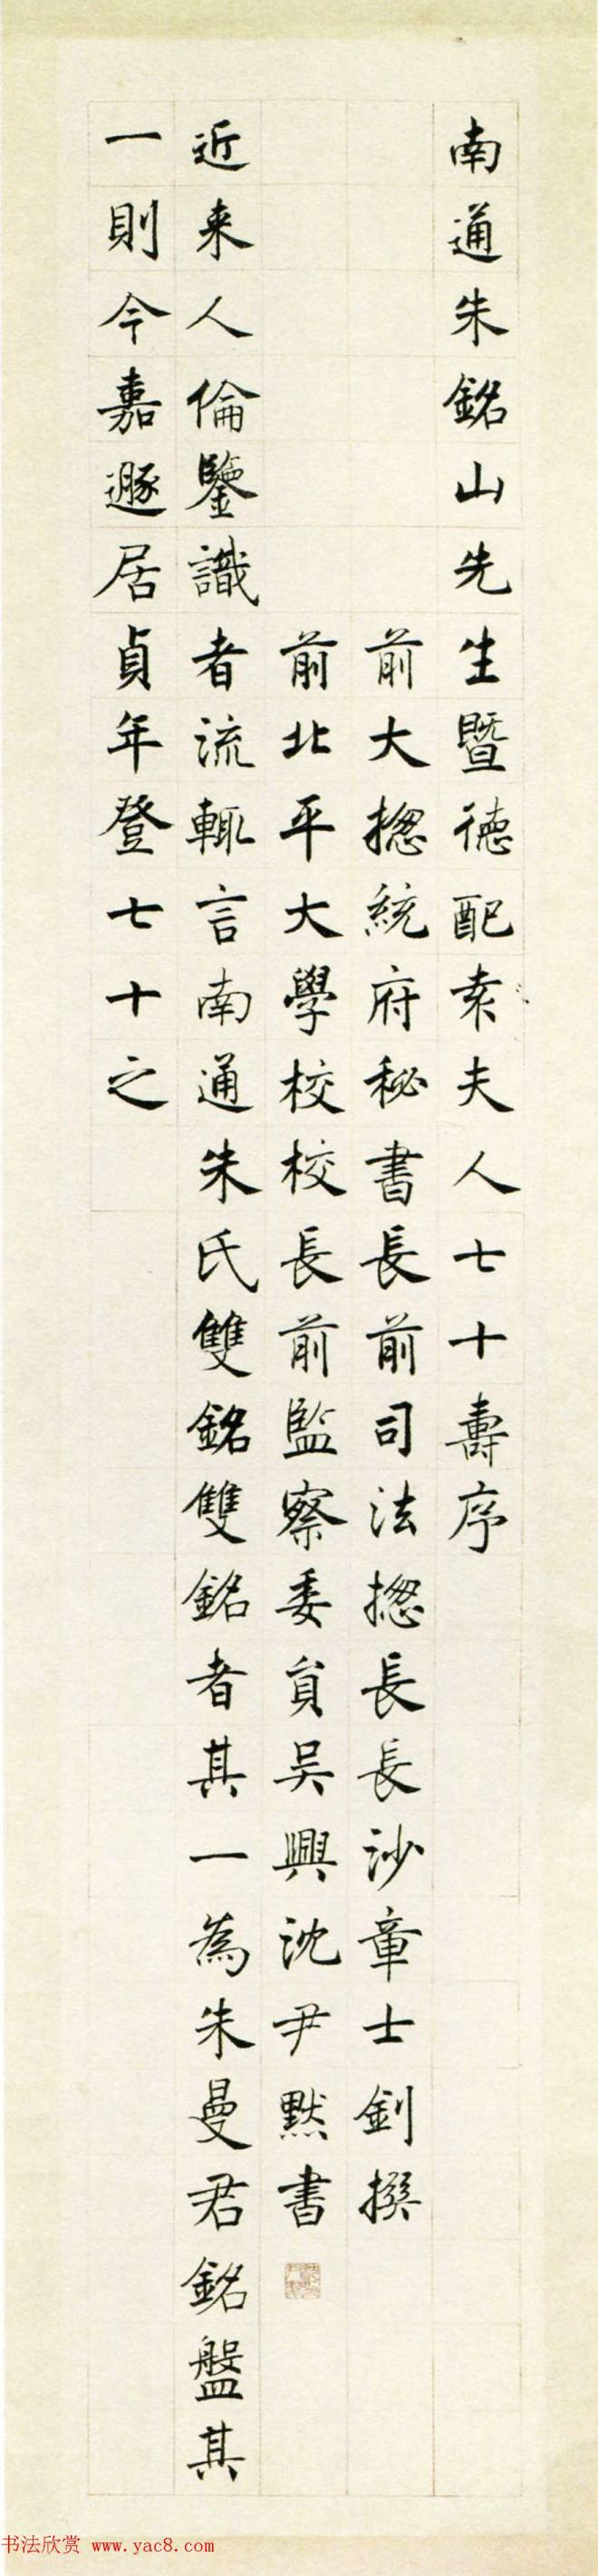 南通朱銘山先生暨德配袁夫人七十壽序
前大揔統府秘書長前司法揔長長沙章士釗撰
前北平大學校校長前監察委員吴興沈尹默書
近来人倫鑒識者流輒言南通朱氏雙銘雙銘者其一為朱曼君銘盤其
一則今嘉遯居貞年登七十之
书法欣赏 www.yac8.com